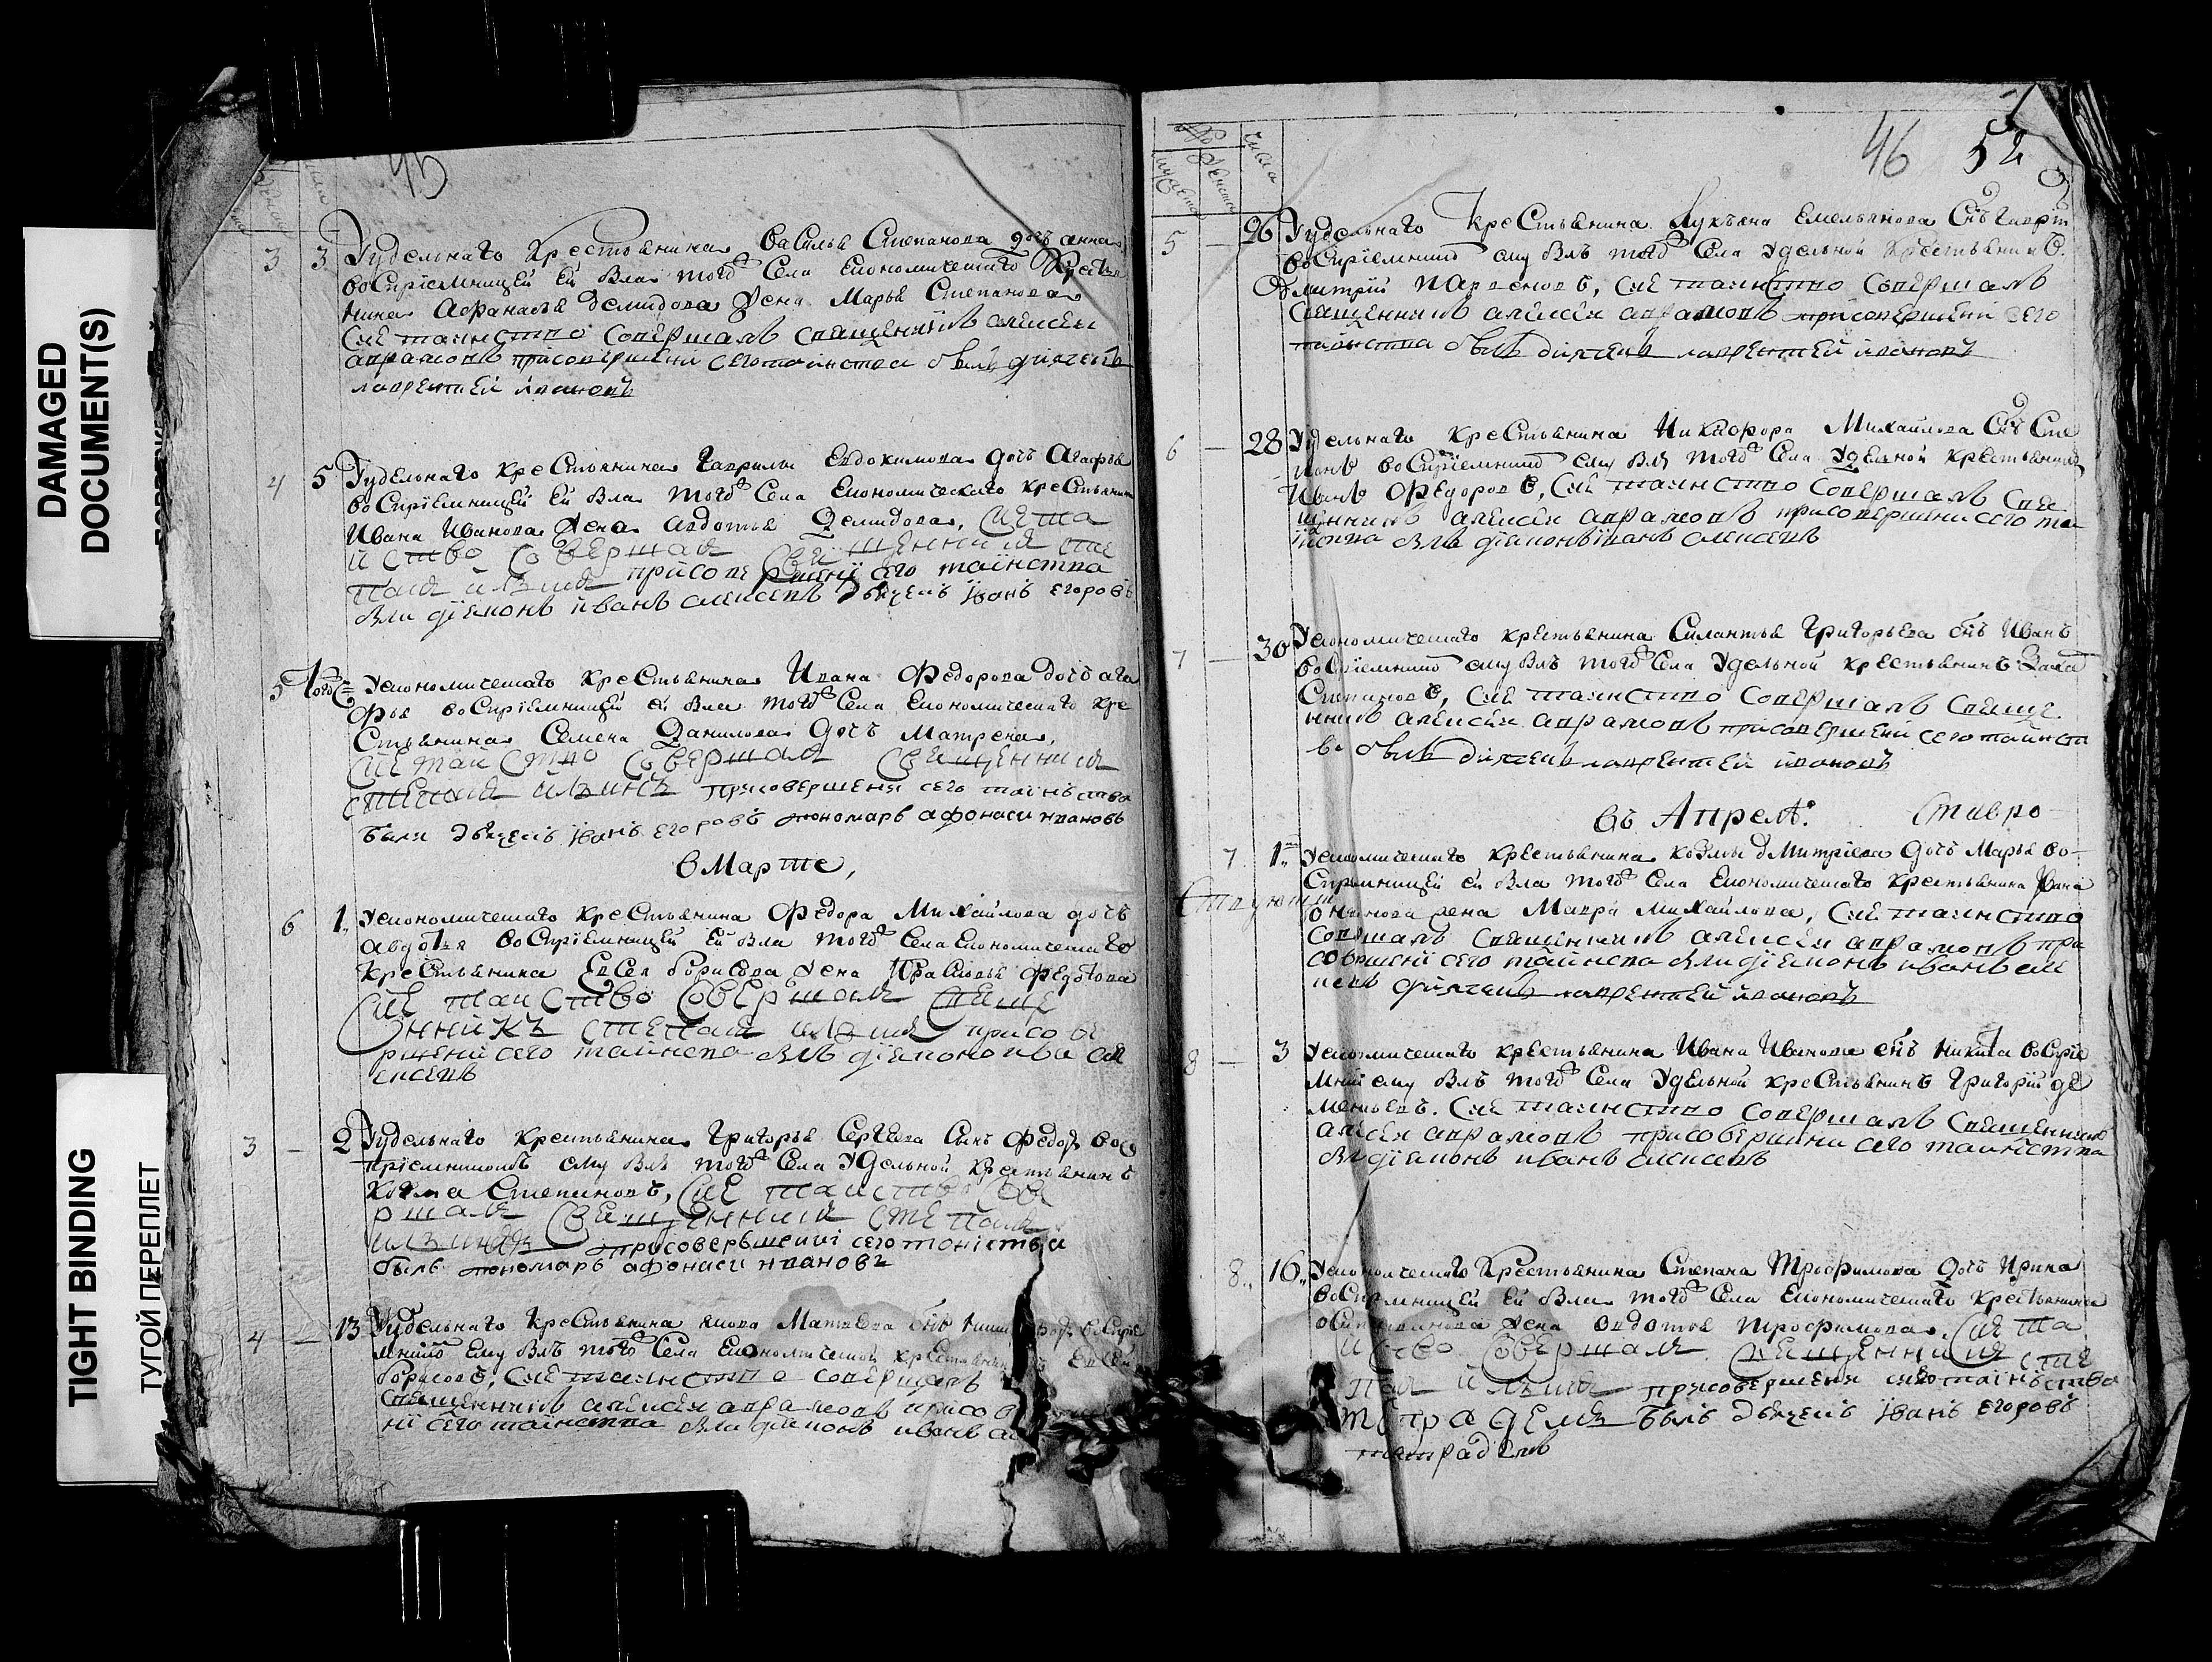 DAMAGED
DOCUMENT(S)
TIGHT BINDING
ТУГОЙ ПЕРЕПЛЕТ
45
3 3 Удельнаго крестьянина Василья Степанова дочь анна
воспріемницей ей была тогожъ села економическаго крестья
нина Афанасья демидова жена Марья Степанова
сие таинство совершалъ священникъ алексеи
аврамовъ присовершени сего таинства былъ дьячекъ
лаврентеи ивановъ
4 5 Удельнаго крестьянина Гаврилы Евдокимова дочь Агафья
воспріемницей ей была тогожъ села економическаго крестьянина
Ивана Иванова жена авдотья Демидова, сие та
иство совершал священник сте
пан ильин присовершиниі сего таинства
были діаконъ иванъ алексеевъ дьячекъ іванъ егоровъ
5 Тогожъ Уекономическаго крестьянина Ивана Федорова дочь ага
фья воспріемницей ей была тогожъ села економическаго кре
стьянина Семена Данилова дочь Матрена,
сие таиство совершал священник
степан ильинъ присовершени сего таинъства
были дьячекъ іванъ егоровъ пономарь афонаси ивановъ
в Марте,
6 1. Уекономическаго крестьянина Федора Михайлова дочь
авдотья воспріемницей ей была тогожъ села економическаго
крестьянина Евсея борисова жена Прасковья федотова
сие таиство совершал свяще
нникъ степан ильин присове
ршени сего таинства былъ діаконъ ива але
ексеевъ
3 — 2 Удельнаго крестьянина Григорья Сергеева сынъ федоръ вос
пріемникомъ ему былъ тогожъ села удельной крестьянинъ
Козма Степановъ, сие таиство сове
ршал священник степан
ильинъ присоверьшениі сего тоиства
былъ пономарь афонаси ивановъ
4 — 13 Удельнаго крестьянина якова Матвеева снъ воспріе
мникъ ему былъ тогожъ села економической крестьянинъ Евсей
борисовъ, сие таинство совершалъ
священникъ алексеи аврамовъ присове
ні сего таинства были діаконъ иванъ ал
46 52
5 — 26 Удельнаго крестьянина Лукьяна Емельянова снъ гаврiл
воспріемникъ ему былъ тогожъ села удельной крестьянинъ
дмитрій парфеновъ, сие таинство совершалъ
священникъ алексеи аврамовъ присовершени сего
таинства былъ дьячекъ лаврентеи ивановъ
6 — 28 Удельнаго крестьянина Никифора Михайлова снъ Сте
панъ воспріемникъ ему былъ тогожъ села удельной крестьянинъ
Иванъ Федоровъ, сие таинство совершалъ свя
щенникъ алексеи аврамовъ присовершени сего та
инства былъ діаконъ іванъ алексеевъ
7 — 30 Уекономическаго крестьянина Силантья Григорьева снъ Иванъ
воспріемникъ ему былъ тогожъ села удельной крестьянинъ Заха
Степановъ, сие таинство совершалъ свяще
нникъ алексеи аврамовъ присовершени сего таинств
ва былъ дьячекъ лаврентеи ивановъ
въ Апреле. Ставро-
7. 1. Уекономическаго крестьянина козмы дмитрiева дочь Марья во-
спріемницей ей была тогожъ села економическаго крестьянина Ивана
жена Мавра Михайлова, сие таинство
совершалъ священникъ алексеи аврамовъ при
совершені сего таинства были діаконъ иванъ але
ксеевъ дьячекъ лаврентеи ивановъ
8 — 3 Уекономическаго крестьянина Ивана Иванова снъ Никита воспріе
мникъ ему былъ тогожъ села удельной крестьянинъ Григорій де
ментьевъ. сие таинство совершалъ священникъ
алексеи аврамовъ присовершени сего таинства
былъ діаконъ иванъ алексеевъ
8.. 16. Уекономическаго крестьянина Степана Трофимова дочь Ирина
воспріемницей ей была тогожъ села економическаго крестьянина
жена авдотья трофимова. сие та
иство совершал священник сте
пан ильин присовершени сего таинъства
былъ дьячекъ іванъ егоровъ